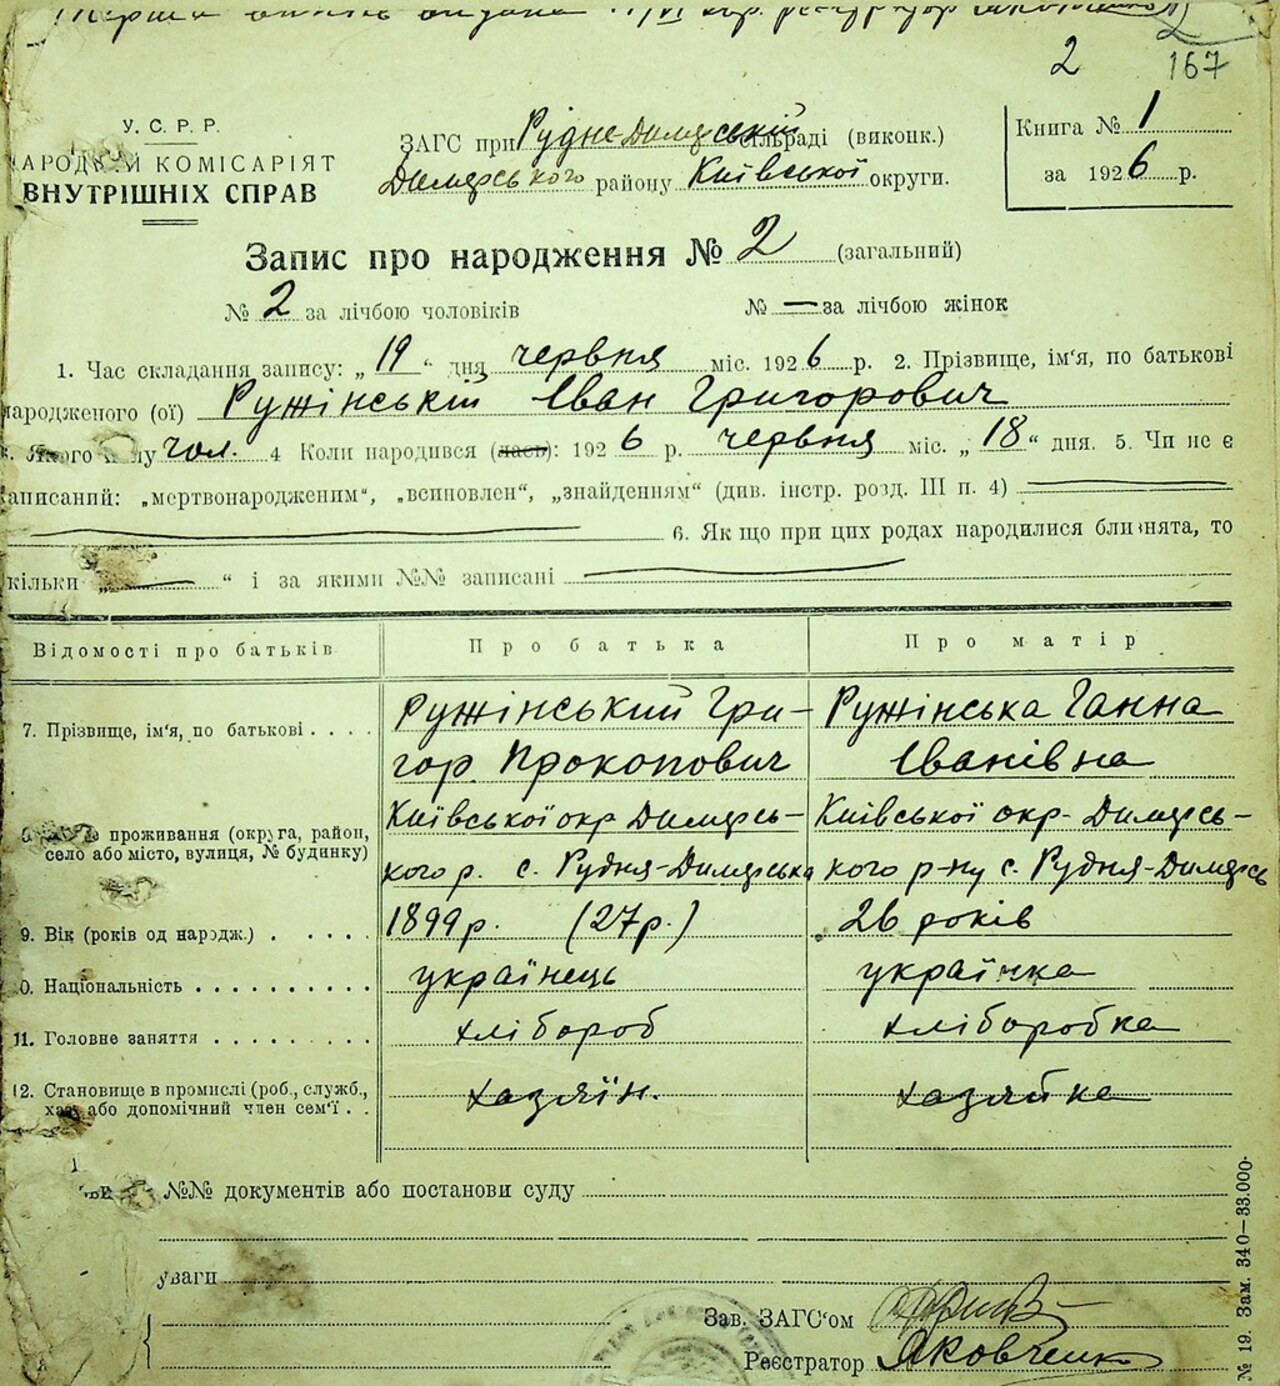 2 167
У. С. Р. Р.
НАРОДНИЙ КОМІСАРІЯТ
ВНУТРІШНІХ СПРАВ
ЗАГС при Рудне-Димерській сільраді (виконк.)
Димерського району Київської округи.
Книга № 1
за 1926 р.
Запис про народження № 2 (загальний)
№ 2 за лічбою чоловіків № — за лічбою жінок
1. Час складання запису: „19“ дня червня міс. 1926 р. 2. Прізвище, ім‘я, по батькові
народженого (ої) Ружінській Іван Григорович
Якого полу чол. 4 Коли народився (лась): 1926 р. червня міс. „18“ дня. 5. Чи не є
записаний: „мертвонародженим“, „всиновлен“, „знайденням“ (див. інстр. розд. III п. 4)
6. Як що при цих родах народилися близнята, то
кільки „—“ і за якими №№ записані
Відомості про батьків Про батька Про матір
7. Прізвище, ім‘я, по батькові Ружінський Гри- Ружінська Ганна
гор. Прокопович Іванівна
проживання (округа, район, село або місто, вулиця, № будинку) Київської окр Димерсь- Київської окр. Димерсь-
кого р. с. Рудня-Димерська кого р-ну с. Рудня-Димерсь
9. Вік (років од народж.) 1899 р. (27 р.) 26 років
0. Національність українець українка
11. Головне заняття хлібороб хліборобка
12. Становище в промислі (роб., служб., хаз. або допомічний член сем‘ї хазяїн. хазяйка
№№ документів або постанови суду
уваги
Зав. ЗАГС‘ом
Реєстратор Яковченко
№ 19. Зам. 340—33.000-